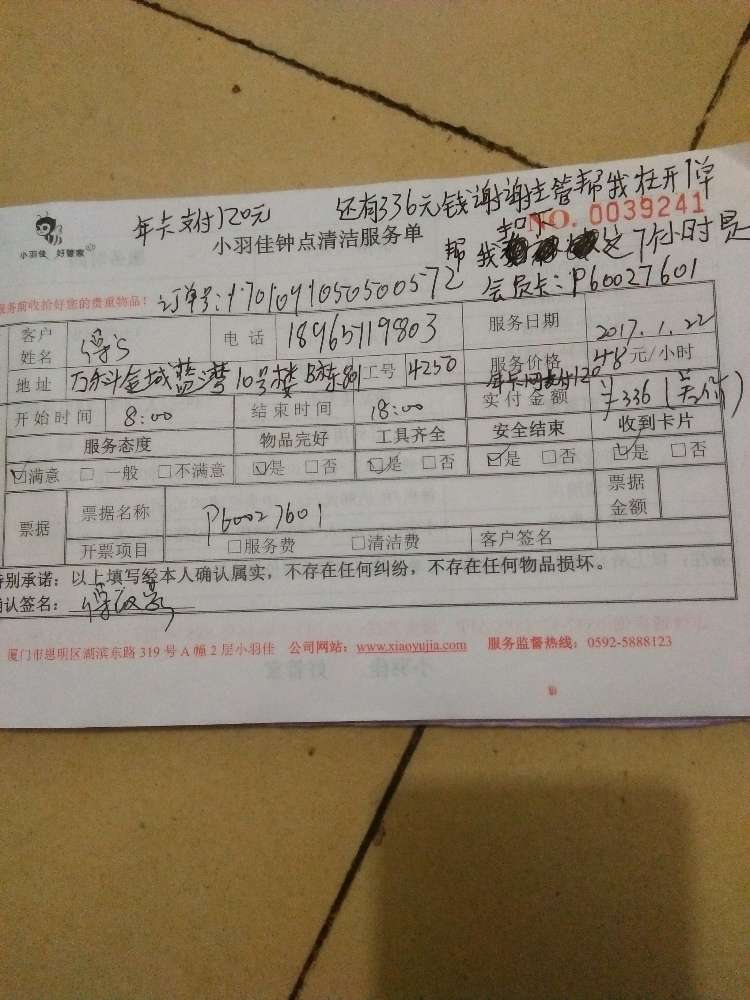 年卡支付120元 还有336元钱谢谢主管帮我在开1单
NO. 0039241
小羽佳 好管家
小羽佳钟点清洁服务单
帮我 这7个小时是
服务前收拾好您的贵重物品！ 订单号:
会员卡：P60027601
客户姓名 电话 18965119803 服务日期 2017.1.22
地址 万科金域蓝湾10号楼B栋801 工号 4250 服务价格 48元/小时
年卡 支付120
开始时间 8:00 结束时间 18:00 实付金额 ￥336
服务态度 物品完好 工具齐全 安全结束 收到卡片
☑满意 □一般 □不满意 ☑是 □否 ☑是 □否 ☑是 □否 ☑是 □否
票据 票据名称 P60027601 票据金额
开票项目 □服务费 □清洁费 客户签名
特别承诺：以上填写经本人确认属实，不存在任何纠纷，不存在任何物品损坏。
确认签名：
厦门市思明区湖滨东路319号A幢2层小羽佳 公司网站：www.xiaoyujia.com 服务监督热线：0592-5888123